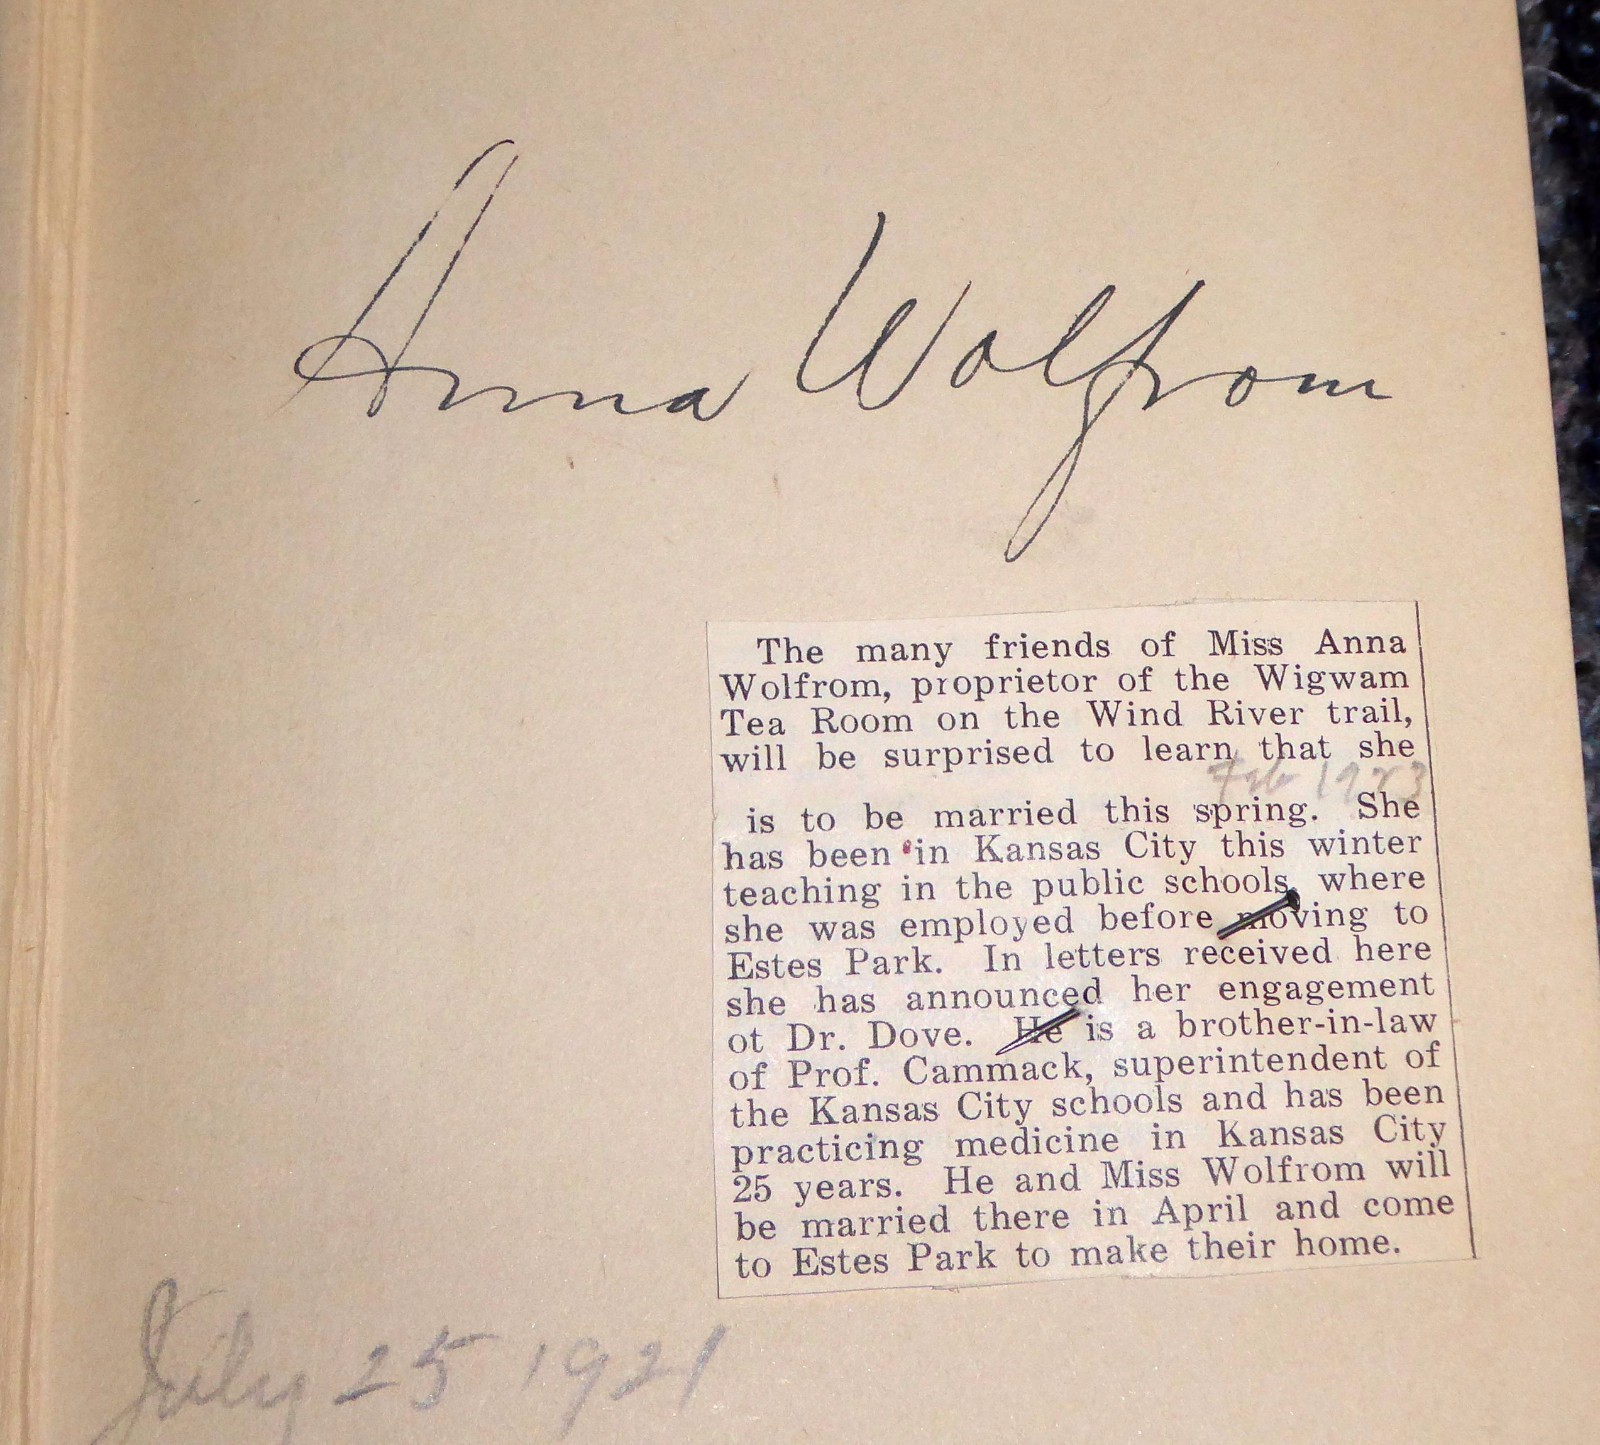 Anna Wolfrom
The many friends of Miss Anna
Wolfrom, proprietor of the Wigwam
Tea Room on the Wind River trail,
will be surprised to learn that she
Feb 1923
is to be married this spring. She
has been in Kansas City this winter
teaching in the public schools, where
she was employed before moving to
Estes Park. In letters received here
she has announced her engagement
ot Dr. Dove. He is a brother-in-law
of Prof. Cammack, superintendent of
the Kansas City schools and has been
practicing medicine in Kansas City
25 years. He and Miss Wolfrom will
be married there in April and come
to Estes Park to make their home.
July 25 1921